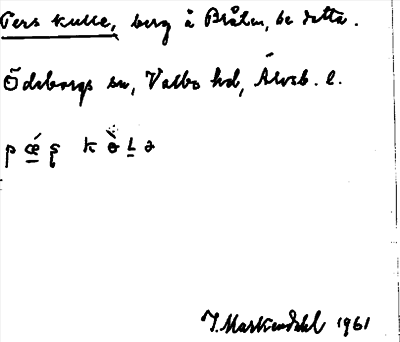 Pers kulle, berg å Bråten, se detta.
Ödeborgs sn, Valbo hd, Älvsb. l.
pǽʂ kòLə
J. Markendahl 1961